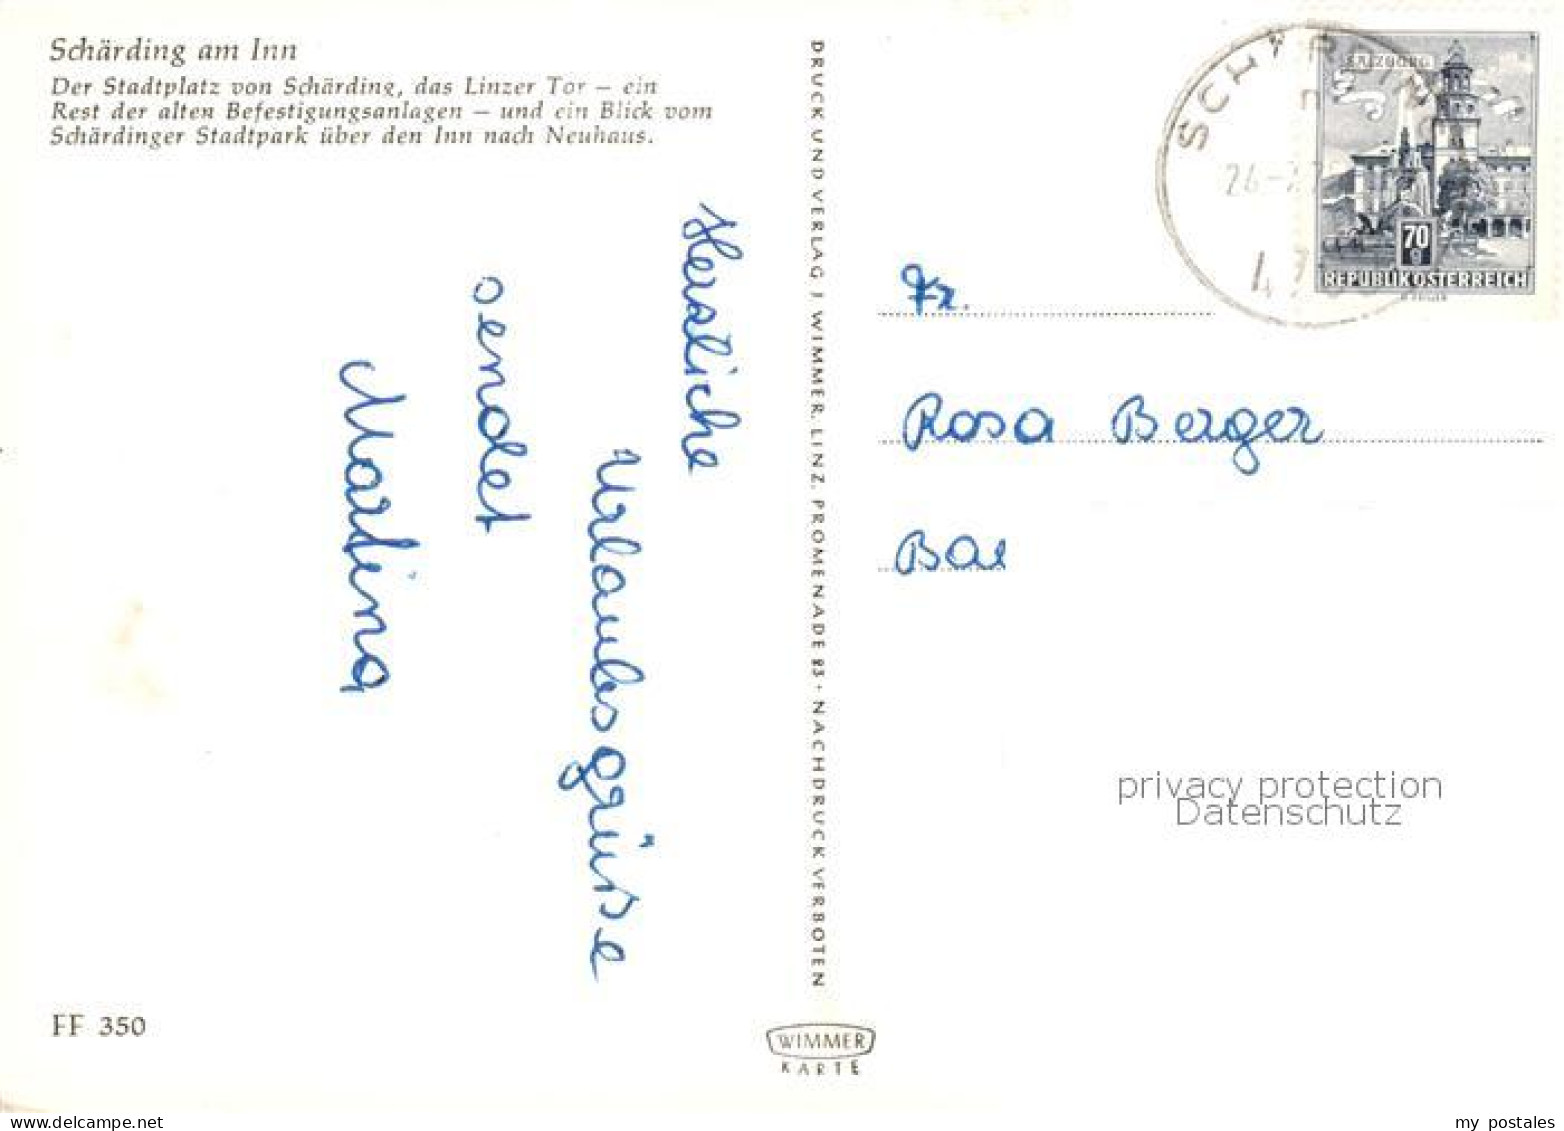 Schärding am Inn
Der Stadtplatz von Schärding, das Linzer Tor – ein
Rest der alten Befestigungsanlagen – und ein Blick vom
Schärdinger Stadtpark über den Inn nach Neuhaus.
Herzliche
Urlaubsgrüsse
sendet
Martina
FF 350
DRUCK UND VERLAG J WIMMER, LINZ, PROMENADE 23 · NACHDRUCK VERBOTEN
WIMMER
KARTE
SCHÄRDING
SALZBURG
70
g
REPUBLIK ÖSTERREICH
Fr.
Rosa Berger
privacy protection
Datenschutz
www.delcampe.net
my_postales